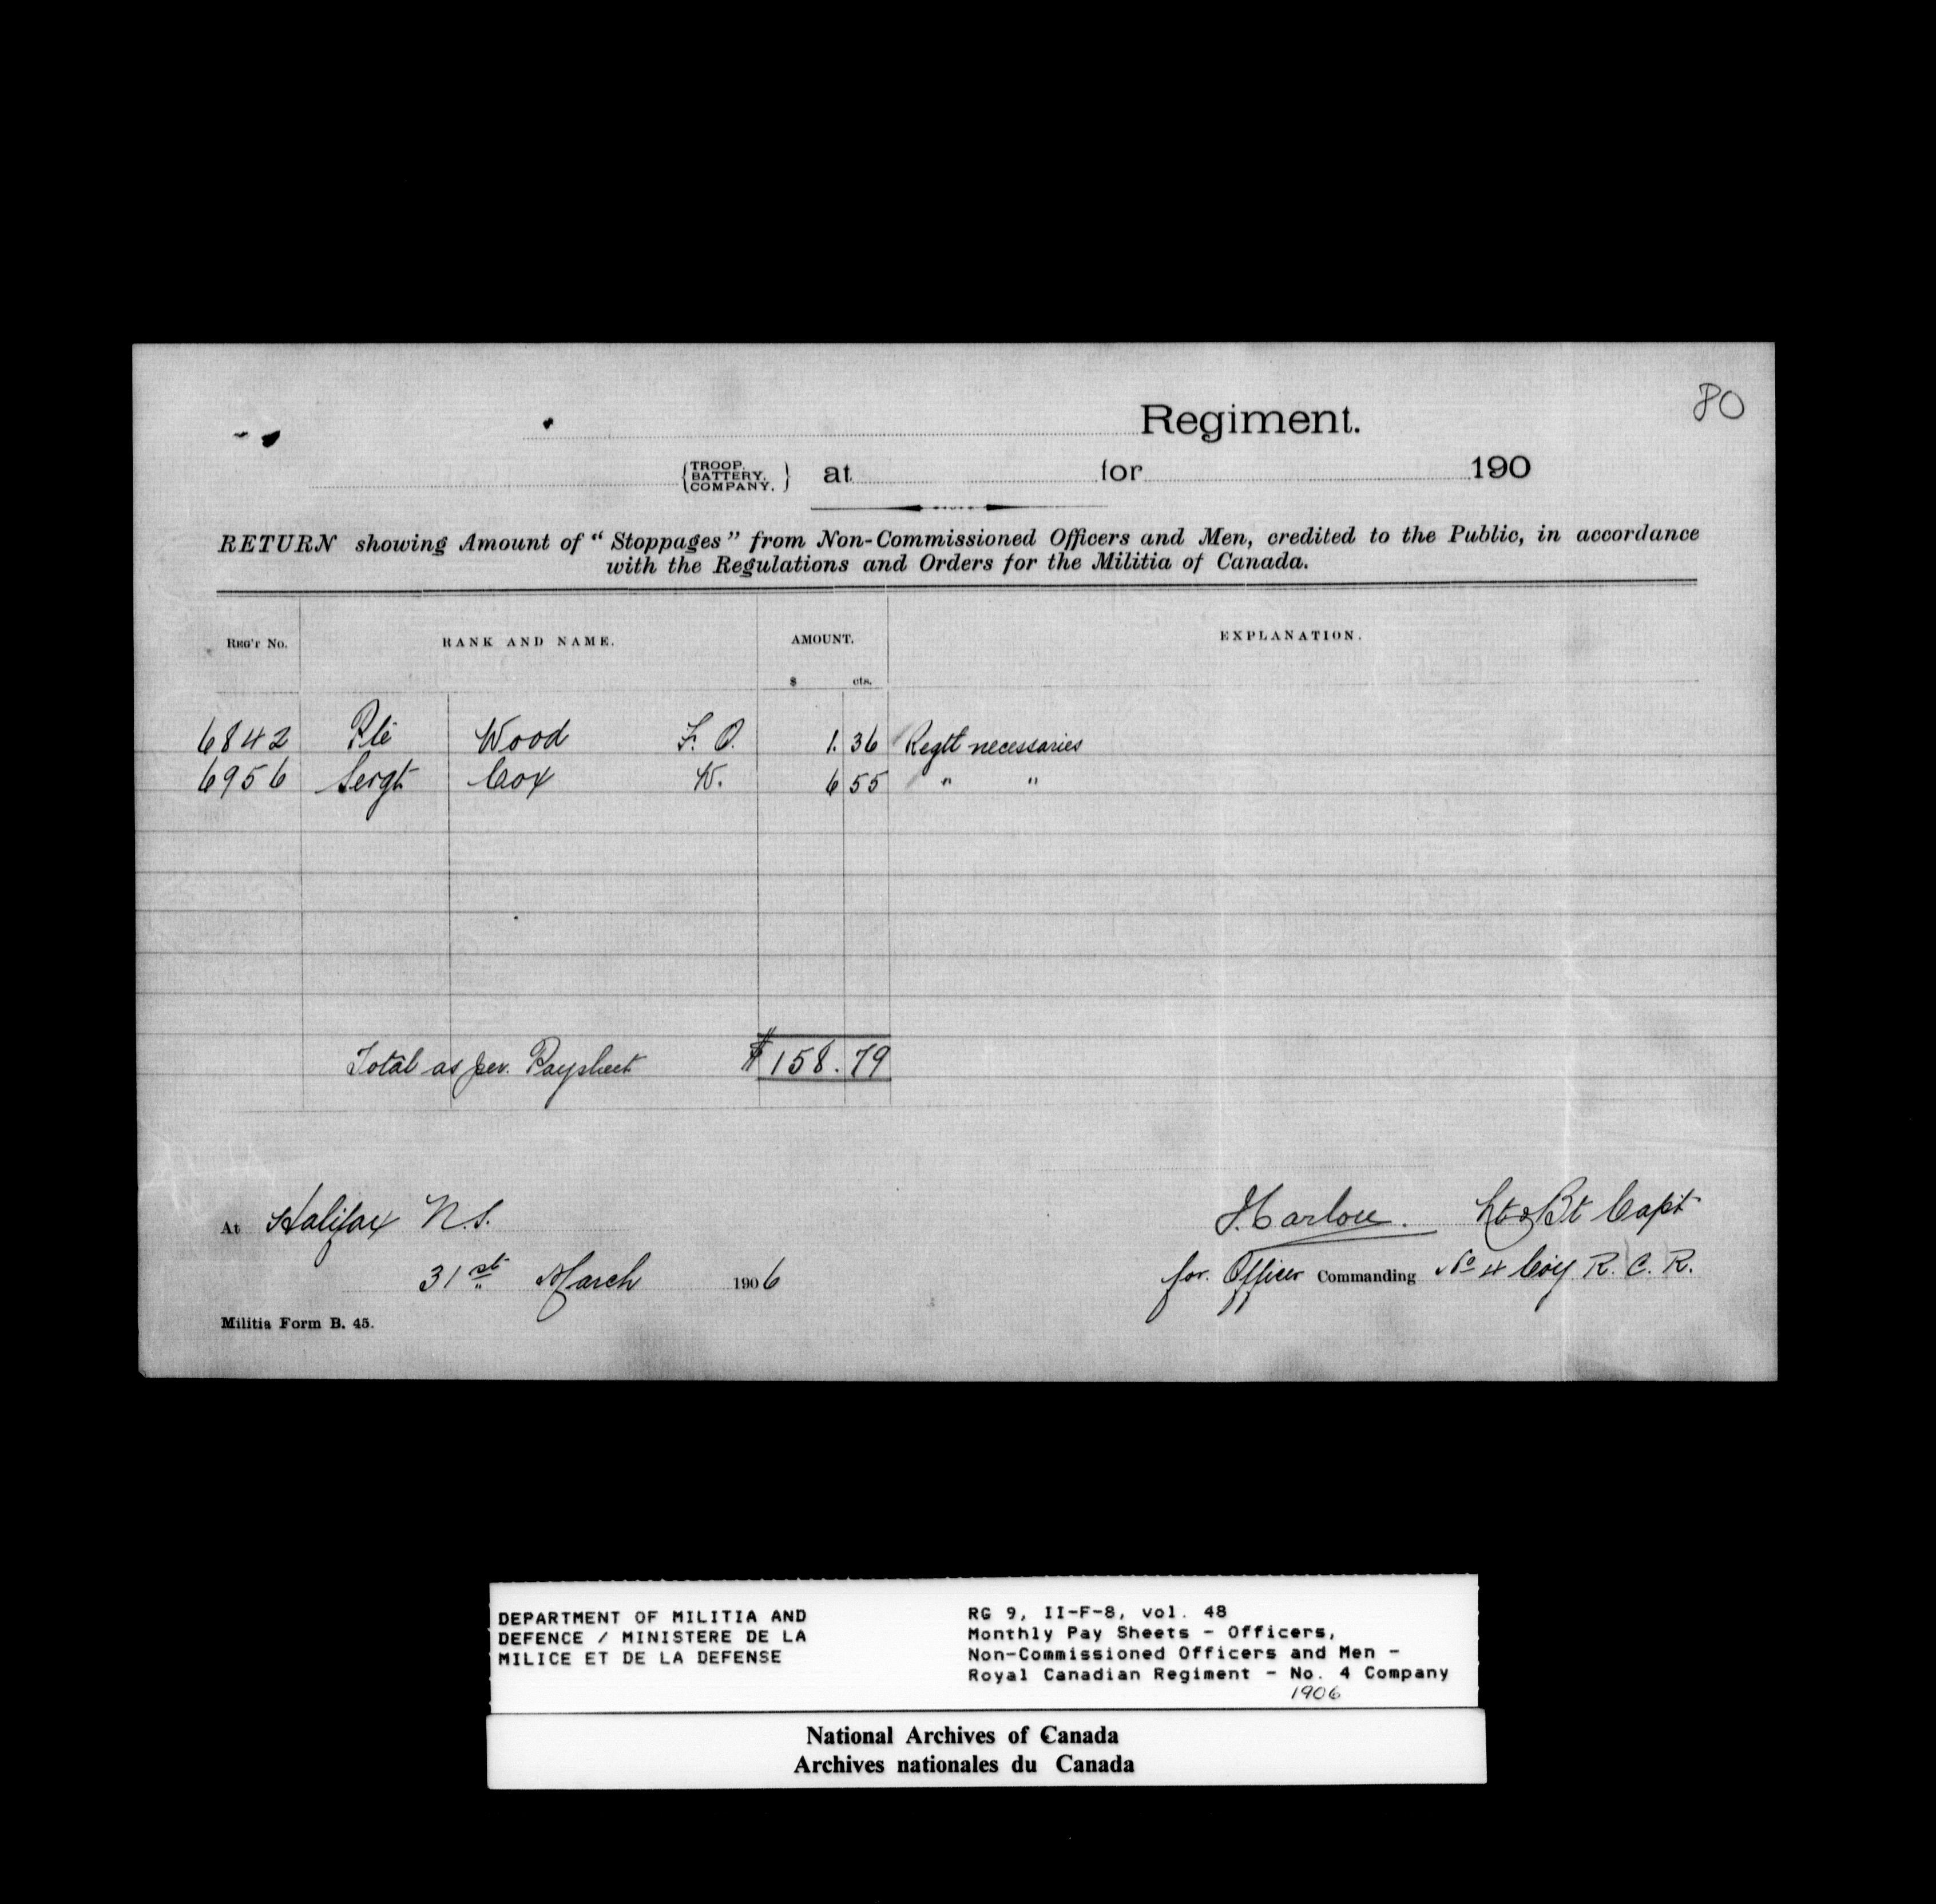 80
Regiment.
{TROOP. BATTERY. COMPANY.} at for 190
RETURN showing Amount of "Stoppages" from Non-Commissioned Officers and Men, credited to the Public, in accordance
with the Regulations and Orders for the Militia of Canada.
REG'T NO. RANK AND NAME. AMOUNT. EXPLANATION.
$ cts.
6842 Pte Wood F. O. 1. 36 Regtl necessaries
6956 Sergt Cox W. 6 55 " "
Total as per. Paysheet $158.79
At Halifax N.S. Lt & Bt Capt
31st March 1906 for Officer Commanding No 4 Coy R. C. R.
Militia Form B. 45.
DEPARTMENT OF MILITIA AND
DEFENCE / MINISTERE DE LA
MILICE ET DE LA DEFENSE
RG 9, II-F-8, vol. 48
Monthly Pay Sheets - Officers,
Non-Commissioned Officers and Men -
Royal Canadian Regiment - No. 4 Company
1906
National Archives of Canada
Archives nationales du Canada